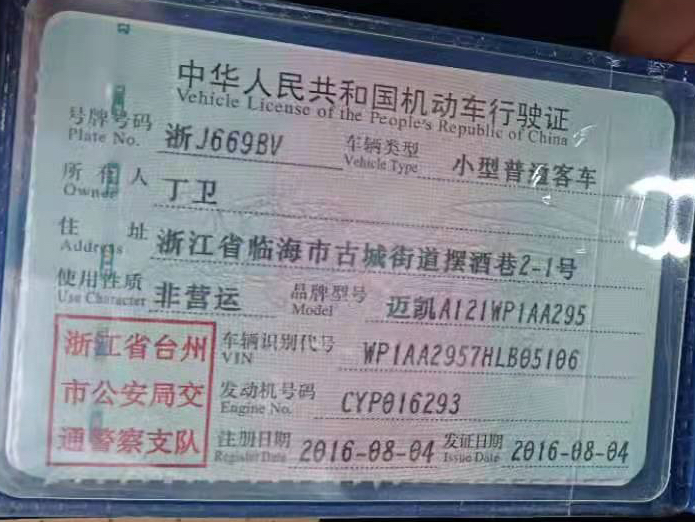 中华人民共和国机动车行驶证
Vehicle License of the People's Republic of China
号牌号码 浙J669BV 车辆类型 小型普通客车
Plate No. Vehicle Type
所有人 丁卫
Owner
住址 浙江省临海市古城街道摆酒巷2-1号
Address
使用性质 非营运 品牌型号 迈凯A121WP1AA295
Use Character Model
浙江省台州
市公安局交
通警察支队
车辆识别代号 WP1AA2957HLB05106
VIN
发动机号码 CYP016293
Engine No.
注册日期 2016-08-04 发证日期 2016-08-04
Register Date Issue Date